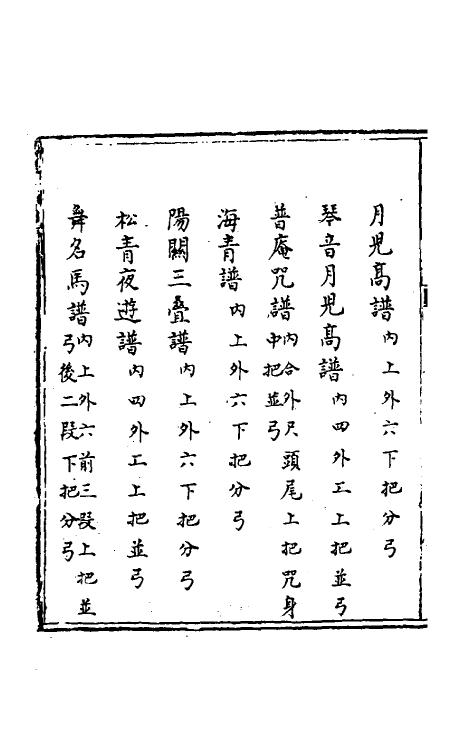 月兒高譜內上外六下把分弓
琴音月兒高譜內四外工上把並弓
普庵咒譜內合外尺頭尾上把咒身中把並弓
海青譜內上外六下把分弓
陽關三疊譜內上外六下把分弓
松青夜遊譜內四外工上把並弓
舞名馬譜內上外六前三段上把並弓後二段下把分弓